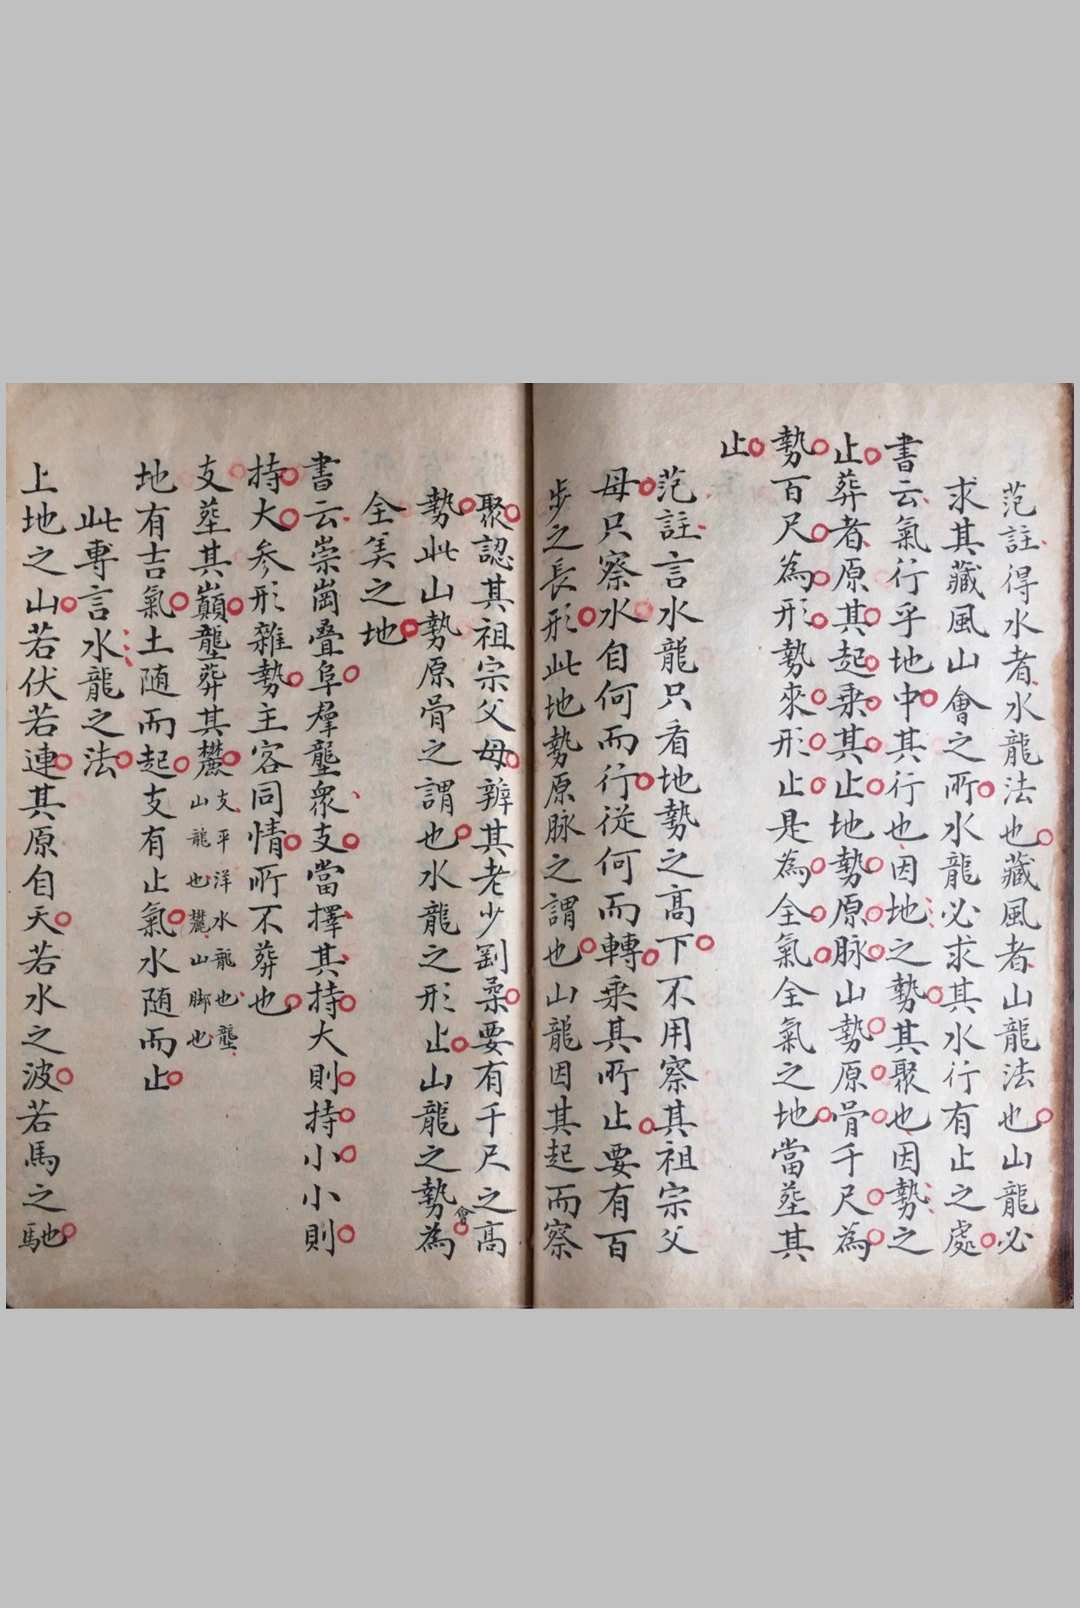 范註得水者水龍法也藏風者山龍法也山龍必
求其藏風山會之所水龍必求其水行有止之處
書云氣行乎地中其行也因地之勢其聚也因勢之
止葬者原其起乘其止地勢原脉山勢原骨千尺為
勢百尺為形勢來形止是為全氣全氣之地當塟其
止
范註言水龍只看地勢之高下不用察其祖宗父
母只察水自何而行從何而轉乘其所止要有百
步之長形此地勢原脉之謂也山龍因其起而察
聚認其祖宗父母辨其老少劉桑要有千尺之高
勢此山勢原骨之謂也水龍之形止山龍之勢為會
全美之地
書云崇崗疊阜羣壟衆支當擇其持大則持小小則
持大参形雜勢主客同情所不葬也
支塟其巔壟葬其麓支平洋水龍也壟山龍也麓山脚也
地有吉氣土随而起支有止氣水随而止
此專言水龍之法
上地之山若伏若連其原自天若水之波若馬之馳